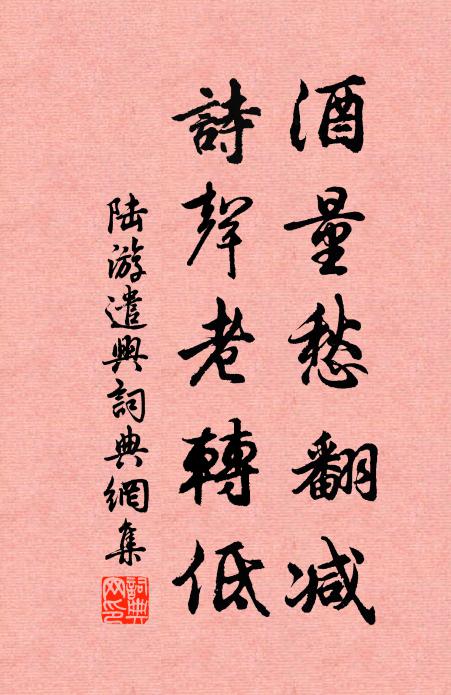 酒量愁翻减
詩聲老轉低
陆游遣興詞典網集
詞典网印